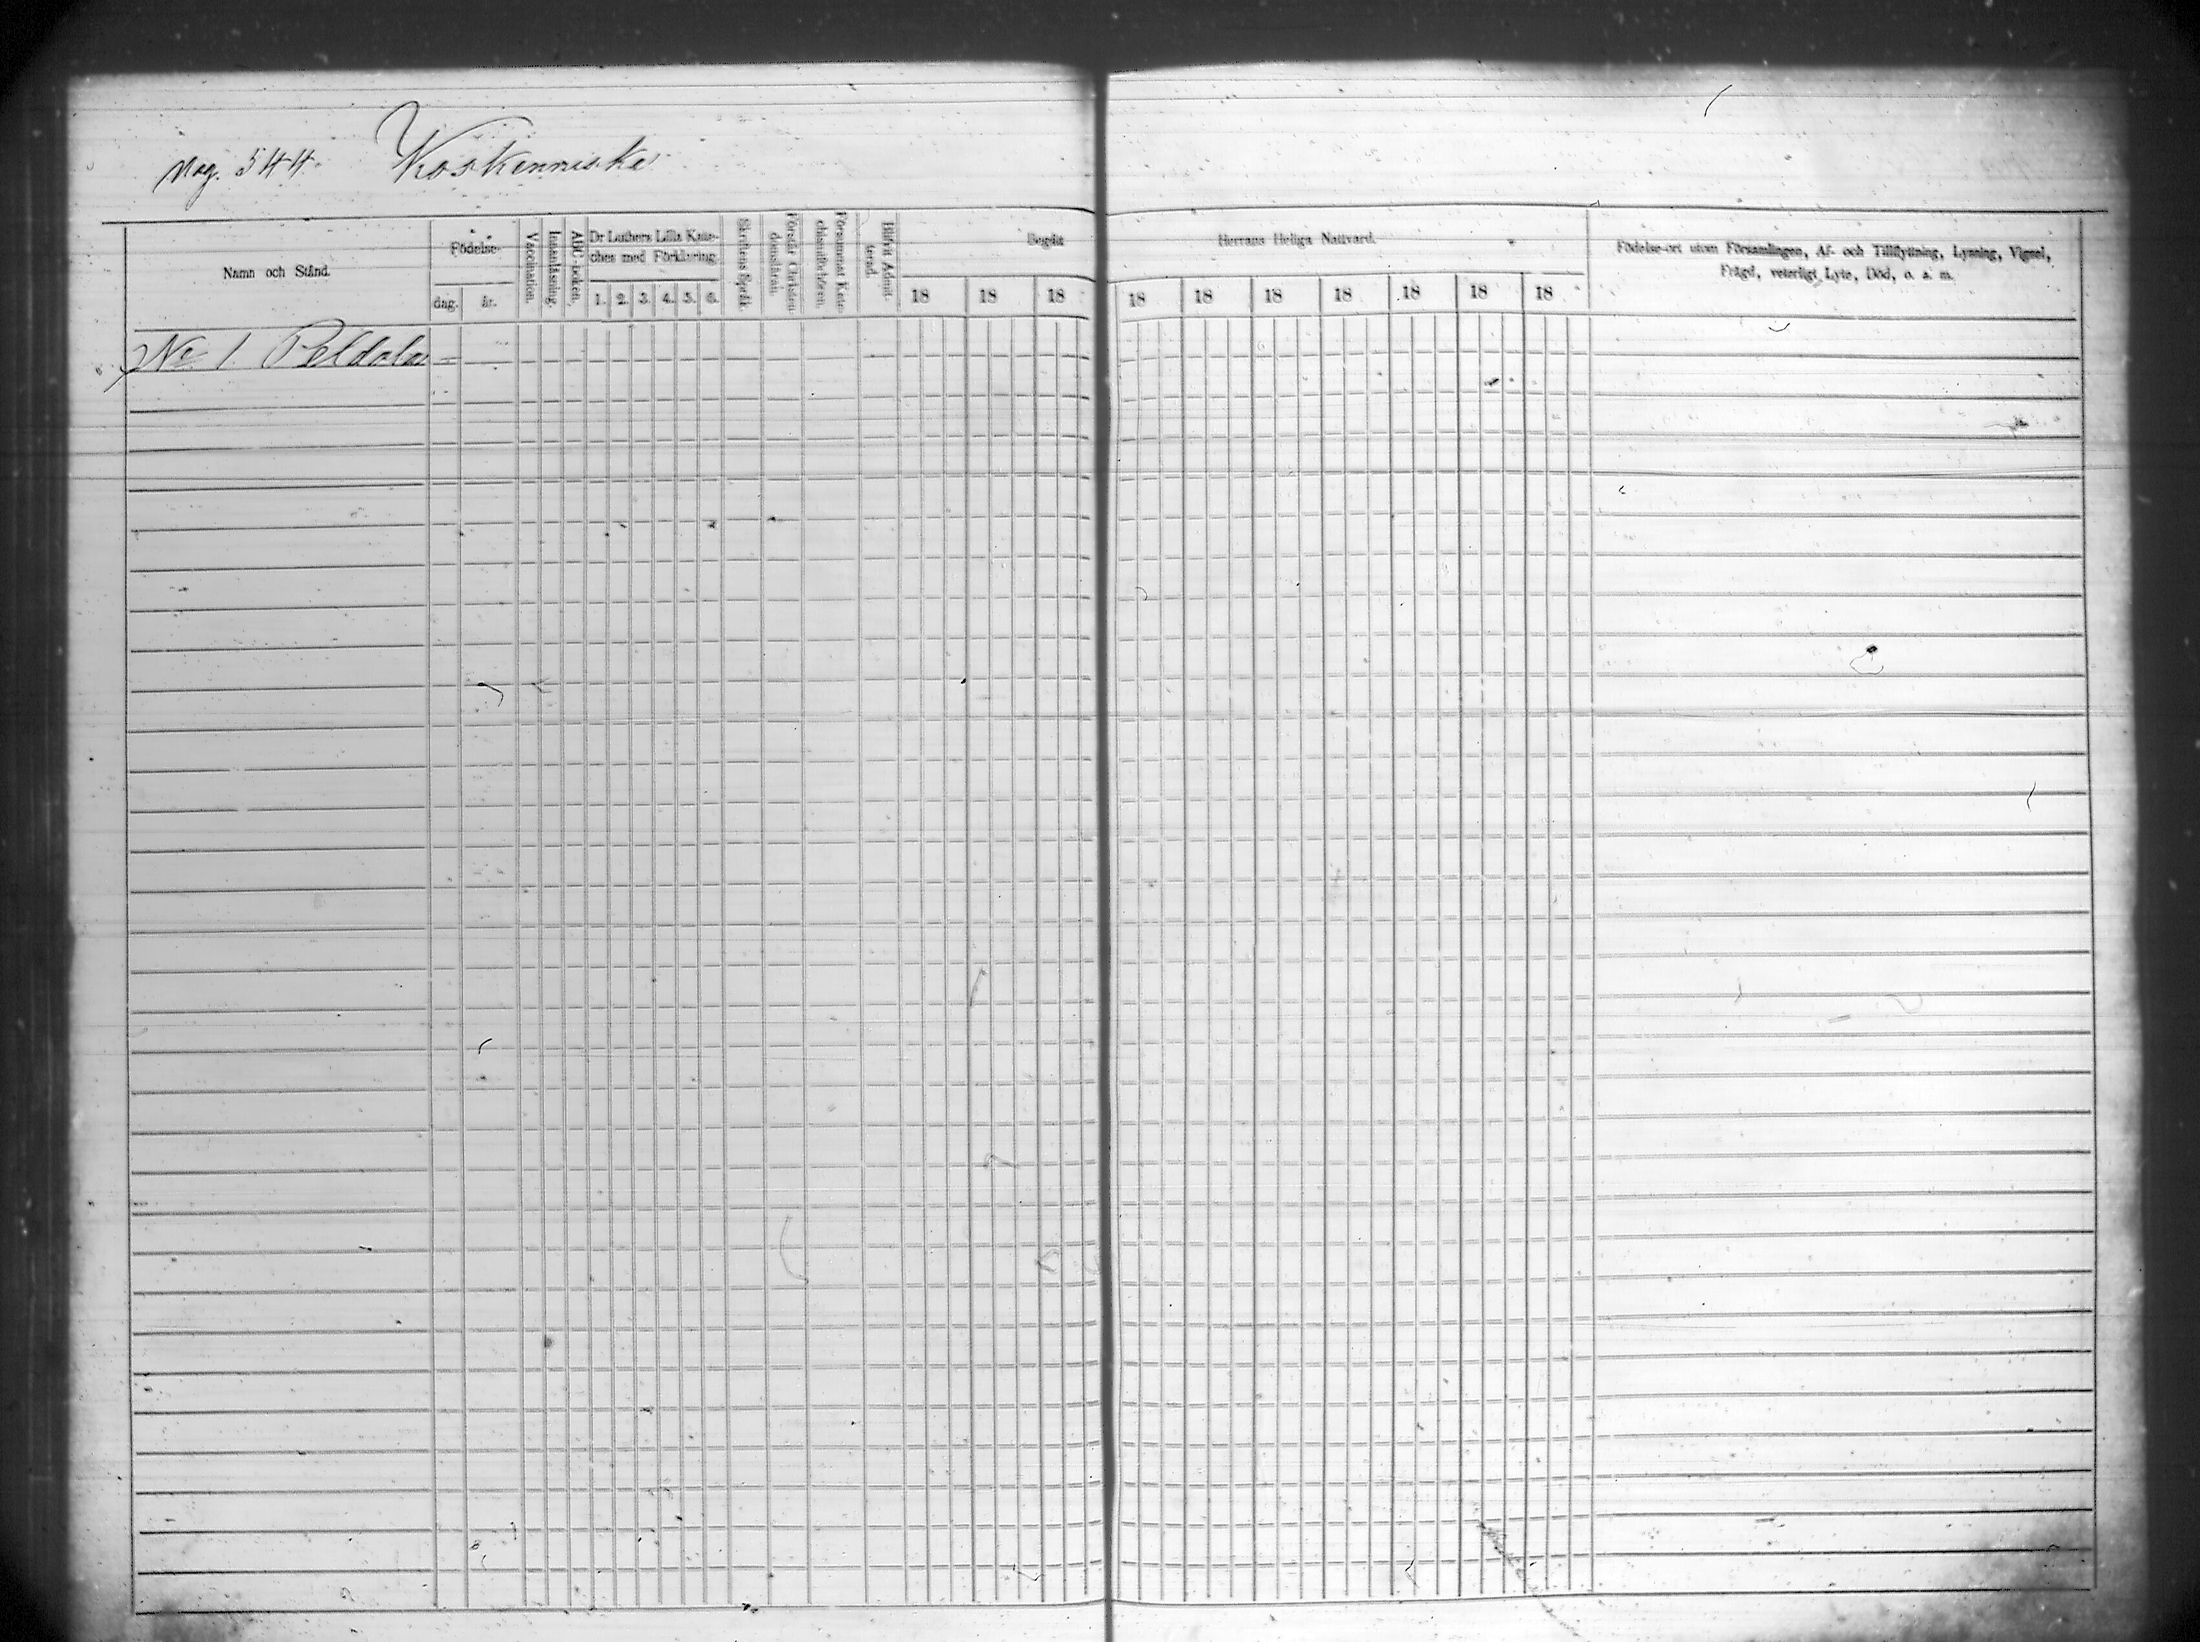 Pag. 544. Koskenniska
Namn och Stånd.
Födelse-
dag. år.
Vaccination.
Innanläsning.
ABC-boken.
Dr Luthers Lilla Kate-
ches med Förklaring.
1. 2. 3. 4. 5. 6.
Skriftens Språk.
Förstår Christen-
domsläran.
Försummat Kate-
chismiförhören.
Blifvit Admit-
terad.
Begått Herrans Heliga Nattvard.
18 18 18 18 18 18 18 18 18 18
Födelse-ort utom Församlingen, Af- och Tillflyttning, Lysning, Vigsel,
Frägd, veterligt Lyte, Död, o. s. m.
No 1. Peldola